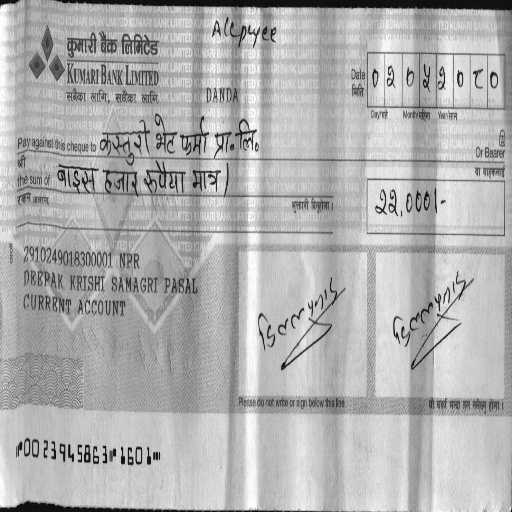 A/c payee
कुमारी बैंक लिमिटेड
KUMARI BANK LIMITED
सबैका लागि, सधैंका लागि
DANDA
Date
मिति
०२०५२०८०
Day/गते Month/महिना Year/साल
Pay against this cheque to कस्तुरी भेट फर्मा प्रा.लि.
Or Bearer
श्री
या वाहकलाई
the sum of बाइस हजार रूपैया मात्र।
रकम अक्षरेपी
भुक्तानी दिनुहोला।
२२,०००/-
2910249018300001 NPR
DEEPAK KRISHI SAMAGRI PASAL
CURRENT ACCOUNT
Please do not write or sign below this line.
⑈0023945863⑈1601⑈